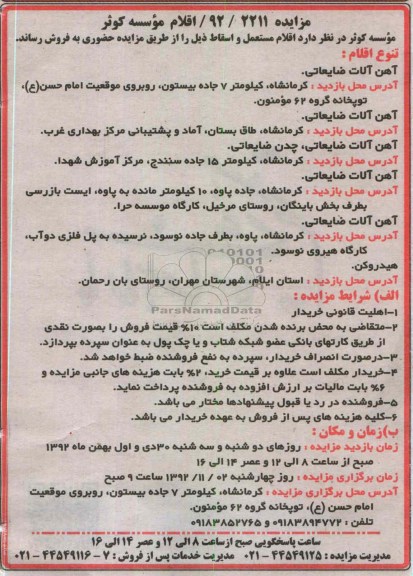 مزایده ۲۲۱۱ / ۹۲/ اقلام مؤسسه کوثر
مؤسسه کوثر در نظر دارد اقلام مستعمل و اسقاط ذیل را از طریق مزایده حضوری به فروش رساند.
تنوع اقلام :
آهن آلات ضایعاتی.
آدرس محل بازدید : کرمانشاه، کیلومتر ۷ جاده بیستون، روبروی موقعیت امام حسن(ع)،
توپخانه گروه ۶۲ مؤمنون.
آهن آلات ضایعاتی.
آدرس محل بازدید : کرمانشاه، طاق بستان، آماد و پشتیبانی مرکز بهداری غرب.
آهن آلات ضایعاتی، چدن ضایعاتی.
آدرس محل بازدید : کرمانشاه، کیلومتر ۱۵ جاده سنندج، مرکز آموزش شهدا.
آهن آلات ضایعاتی.
آدرس محل بازدید : کرمانشاه، جاده پاوه، ۱۰ کیلومتر مانده به پاوه، ایست بازرسی
بطرف بخش باینگان، روستای مرخیل، کارگاه موسسه حرا.
آهن آلات ضایعاتی.
آدرس محل بازدید : کرمانشاه، پاوه، بطرف جاده نوسود، نرسیده به پل فلزی دوآب،
کارگاه هیروی نوسود.
هیدروکن.
آدرس محل بازدید : استان ایلام، شهرستان مهران، روستای بان رحمان.
الف) شرایط مزایده :
۱-اهلیت قانونی خریدار
۲-متقاضی به محض برنده شدن مکلف است ۱۰% قیمت فروش را بصورت نقدی
از طریق کارتهای بانکی عضو شبکه شتاب و یا چک پول به عنوان سپرده بپردازد.
۳-درصورت انصراف خریدار، سپرده به نفع فروشنده ضبط خواهد شد.
۴-خریدار مکلف است علاوه بر قیمت خرید، ۲% بابت هزینه های جانبی مزایده و
۶% بابت مالیات بر ارزش افزوده به فروشنده پرداخت نماید.
۵-فروشنده در رد یا قبول پیشنهادها مختار می باشد.
۶-کلیه هزینه های پس از فروش به عهده خریدار می باشد.
ب)زمان و مکان :
زمان بازدید مزایده : روزهای دو شنبه و سه شنبه ۳۰دی و اول بهمن ماه ۱۳۹۲
صبح از ساعت ۸ الی ۱۲ و عصر ۱۴ الی ۱۶
زمان برگزاری مزایده : روز چهارشنبه ۰۲ / ۱۱/ ۱۳۹۲ ساعت ۹ صبح
آدرس محل برگزاری مزایده : کرمانشاه، کیلومتر ۷ جاده بیستون، روبروی موقعیت
امام حسن (ع)، توپخانه گروه ۶۲ مؤمنون.
تلفن : ۰۹۱۸۳۸۹۴۷۷۲ و ۰۹۱۸۳۸۵۲۷۶۵
ساعت پاسخگویی صبح از ساعت ۸ الی ۱۲ و عصر ۱۴ الی ۱۶
مدیریت مزایده : ۴۴۵۴۹۱۲۵ - ۰۲۱ مدیریت خدمات پس از فروش : ۷ - ۴۴۵۴۹۱۱۶ - ۰۲۱
ParsNamadData